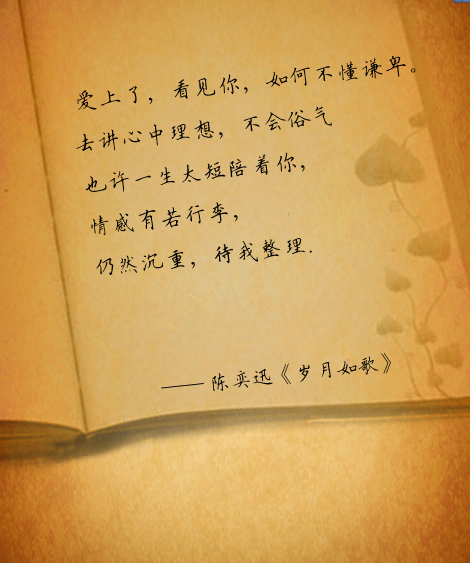 爱上了，看见你，如何不懂谦卑。
去讲心中理想，不会俗气
也许一生太短陪着你，
情感有若行李，
仍然沉重，待我整理.
——陈奕迅《岁月如歌》